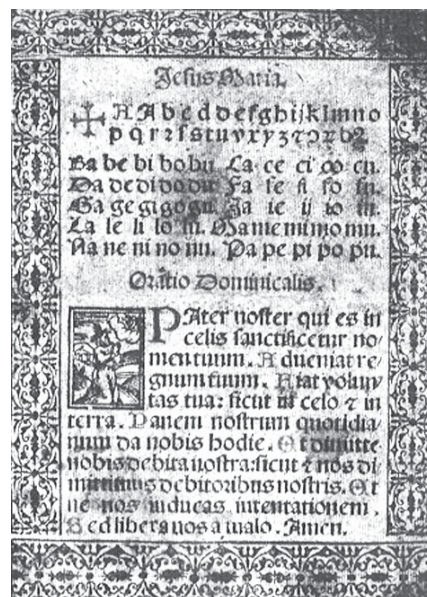 Jesus Maria.
✠ A A b c d d e f g h i j k l m n o
p q r r s s t u v x y z
Ba be bi bo bu Ca ce ci co cu.
Da de di do du Fa fe fi fo fu.
Ga ge gi go gu Ja ie ij io iu.
La le li lo lu Ma me mi mo mu.
Na ne ni no nu. Pa pe pi po pu.
Oratio Dominicalis.
PAter noster qui es in
celis sanctificetur no/
men tuum. Adueniat re/
gnum tuum. Fiat volun/
tas tua: sicut in celo ⁊ in
terra. Panem nostrum quotidia/
num da nobis hodie. Et dimitte
nobis debita nostra: sicut ⁊ nos di/
mittimus debitoribus nostris. Et
ne nos inducas in tentationem.
Sed libera nos a malo. Amen.